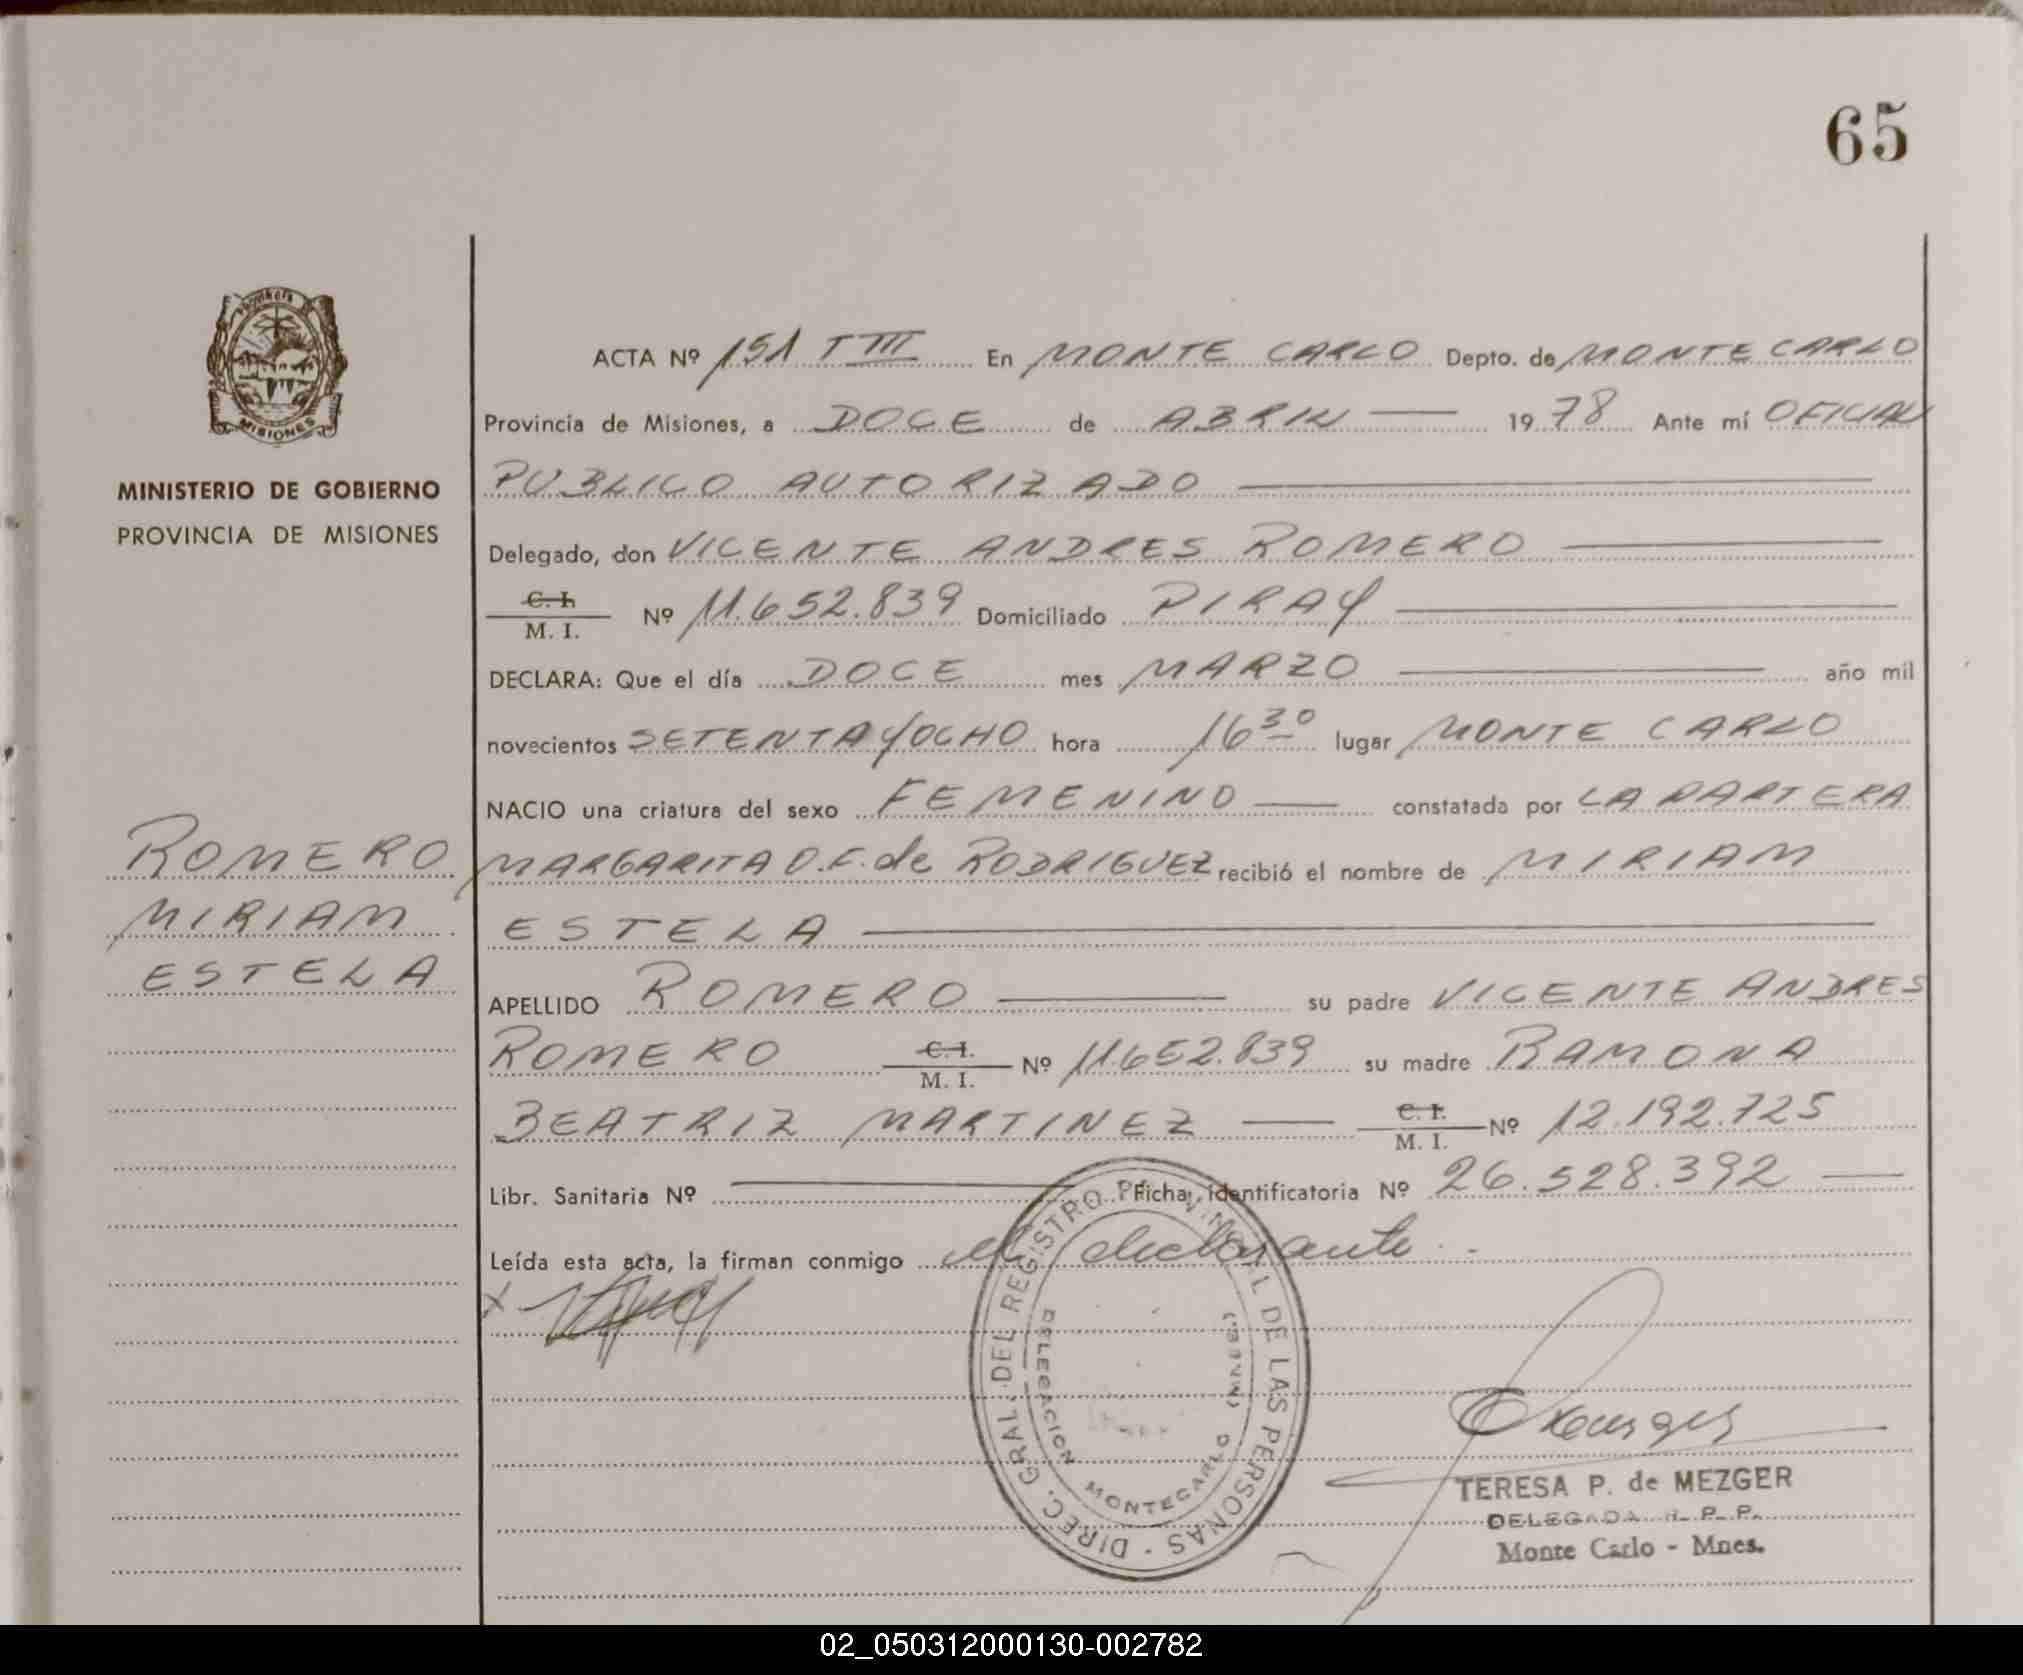 65
MISIONES
MINISTERIO DE GOBIERNO
PROVINCIA DE MISIONES
ROMERO
MIRIAM
ESTELA
ACTA Nº 151 T III En MONTE CARLO Depto. de MONTE CARLO
Provincia de Misiones, a DOCE de ABRIL 1978 Ante mí OFICIAL
PUBLICO AUTORIZADO
Delegado, don VICENTE ANDRES ROMERO
C. I.
M. I. Nº 11.652.839 Domiciliado PIRAY
DECLARA: Que el día DOCE mes MARZO año mil
novecientos SETENTA y OCHO hora 16 30 lugar MONTE CARLO
NACIO una criatura del sexo FEMENINO constatada por LA PARTERA
MARGARITA O.F. de RODRIGUEZ recibió el nombre de MIRIAM
ESTELA
APELLIDO ROMERO su padre VICENTE ANDRES
ROMERO C. I. M. I. Nº 11.652.839 su madre RAMONA
BEATRIZ MARTINEZ C. I. M. I. Nº 12.192.725
Libr. Sanitaria Nº Ficha identificatoria Nº 26.528.392
Leída esta acta, la firman conmigo el declarante
DIREC. GRAL. DEL REGISTRO PROVINCIAL DE LAS PERSONAS
DELEGACION MONTECARLO (MNES.)
TERESA P. de MEZGER
DELEGADA R. P. P.
Monte Carlo - Mnes.
02_050312000130-002782